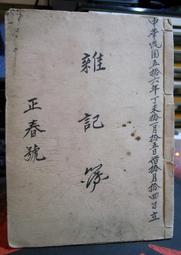 中華民國五拾六年丁未拾一月拾五日借拾月拾四日立
雜記簿
正春號